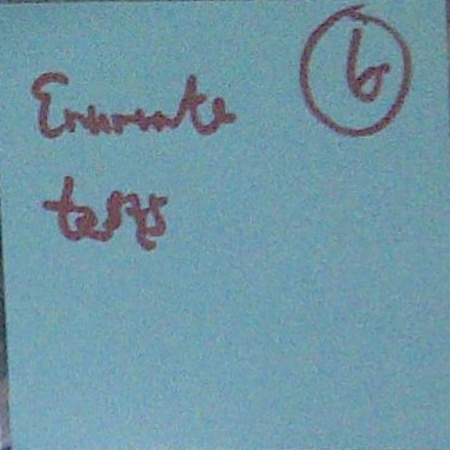 Enumerate 6
tests